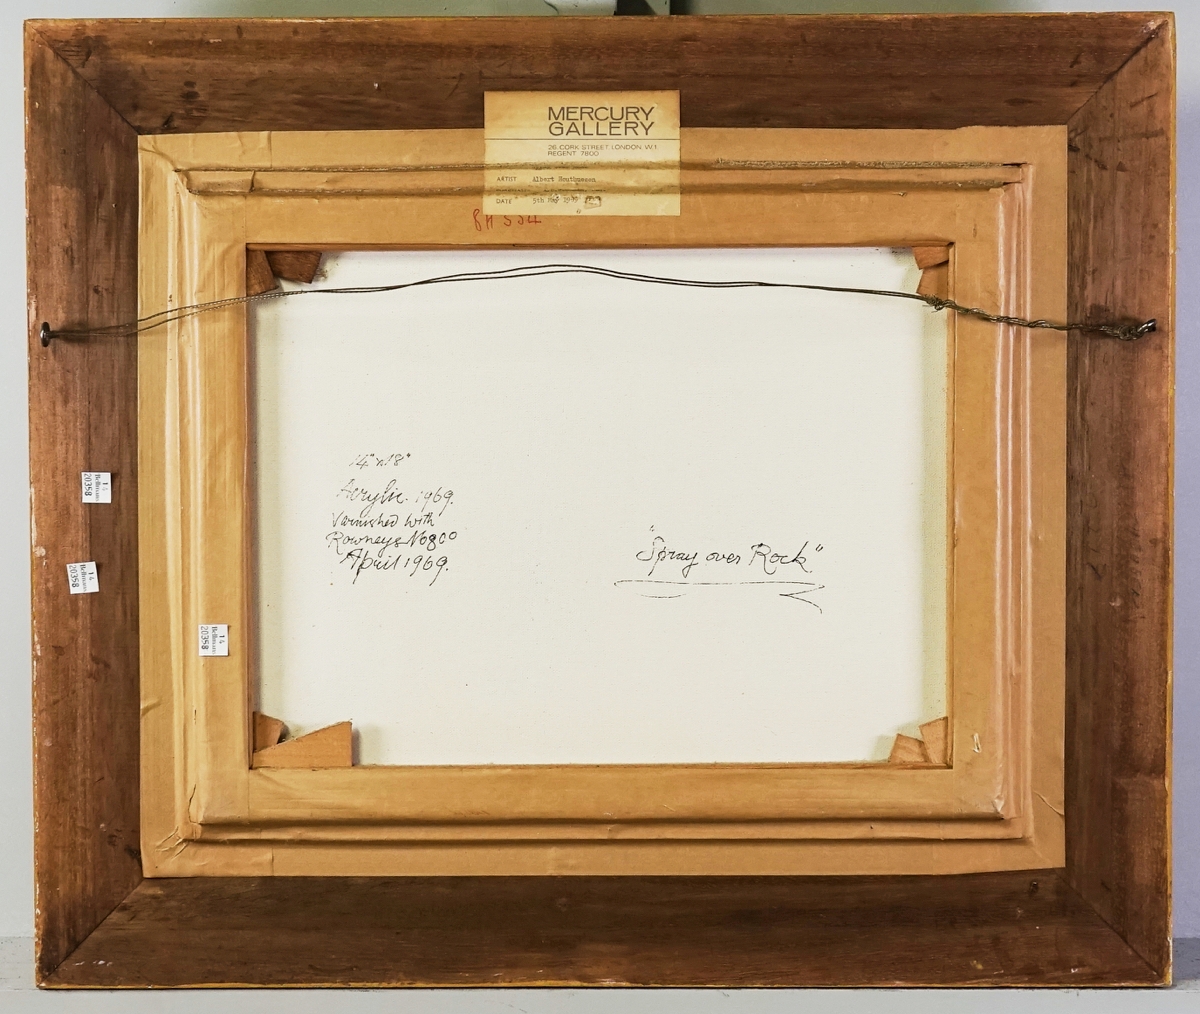 MERCURY
GALLERY
26 CORK STREET LONDON W.1
REGENT 7800
ARTIST Albert Houthuesen
DATE 5th May 1969
14" x 18"
Acrylic. 1969.
Varnished with
Rowneys No 800
April 1969.
"Spray over Rock"
14
Bellmans
20358
14
Bellmans
20358
14
Bellmans
20358